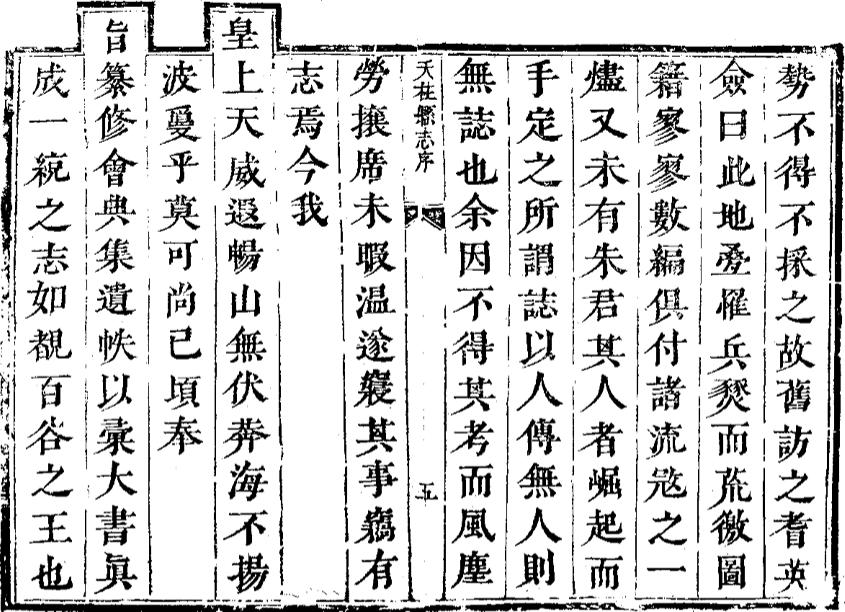 勢不得不採之故舊訪之耆英
僉曰此地疊罹兵燹而荒徼圖
籍寥寥數編俱付諸流寇之一
燼又未有朱君其人者崛起而
手定之所謂誌以人傳無人則
無誌也余因不得其考而風塵
天柱縣志序
五
勞攘席未暇温遂寢其事竊有
志焉今我
皇上天威遐暢山無伏莽海不揚
波戞乎莫可尚已頃奉
旨纂修會典集遺帙以彙大書眞
成一統之志如覩百谷之王也